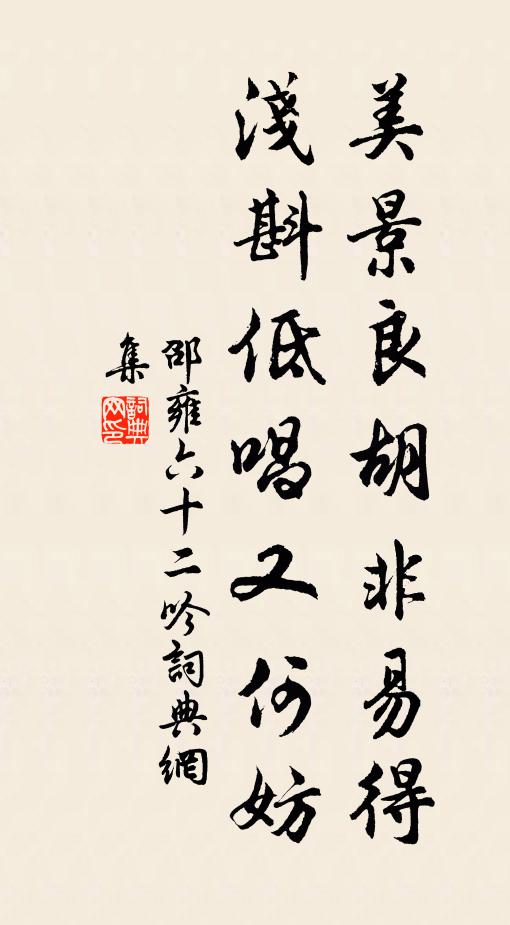 美景良胡非易得
淺斟低唱又何妨
邵雍六十二吟詞典網
集
詞典網印